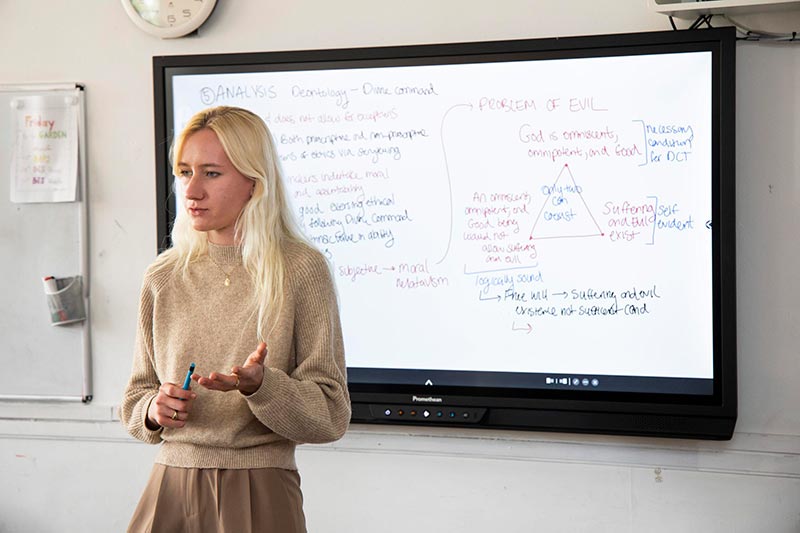 Friday
GARDEN
⑤ ANALYSIS Deontology - Divine command
does not allow for exceptions
Both prescriptive and non-prescriptive
of ethics via storytelling
undertake moral
and accountability
good exercising ethical
following Divine Command
value in ability
subjective → moral
relativism
PROBLEM OF EVIL
God is omniscients,
omnipotent, and good
necessary
condition
for DCT
Only two
can
coexist
An omniscient,
omnipotent, and
Good being
would not
allow suffering
and evil
Suffering
and Evil
exist
self
evident
logically sound
Free will → Suffering and evil
existence not sufficient cond
Promethean